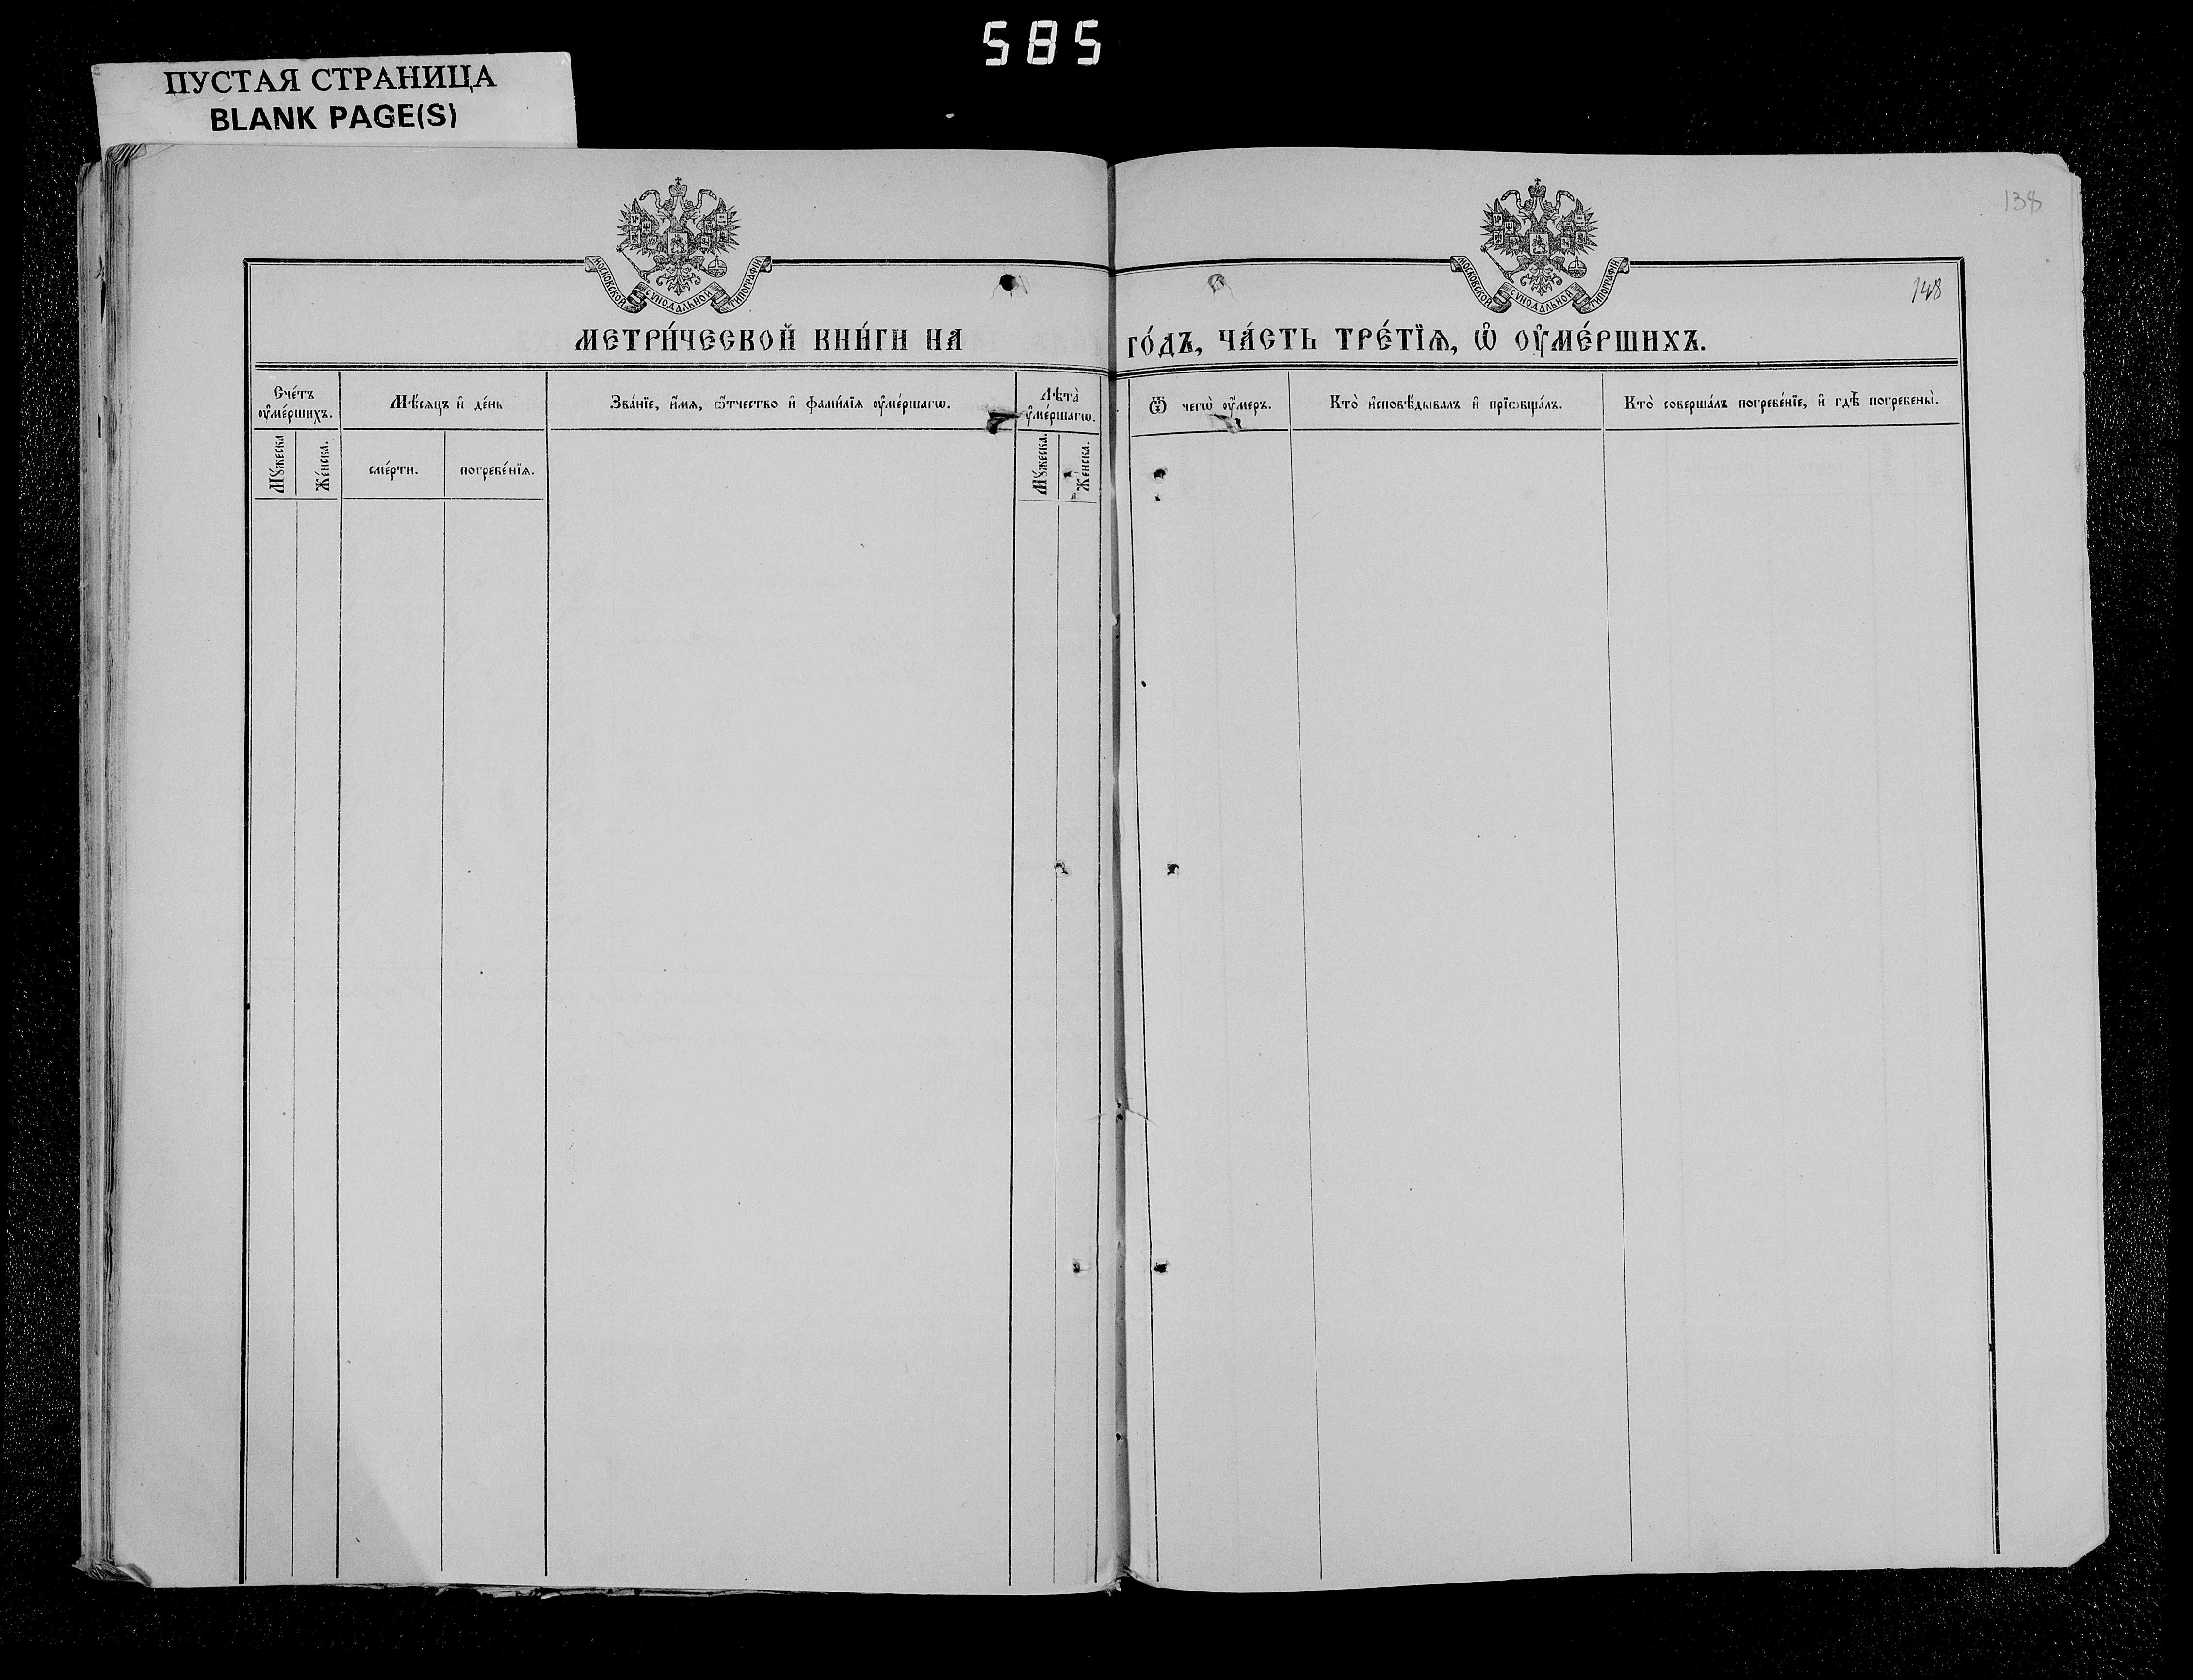 585
ПУСТАЯ СТРАНИЦА
BLANK PAGE(S)
138
МОСКОВСКОЙ СѴНОДАЛЬНОЙ ТИПОГРАФІИ
МОСКОВСКОЙ СѴНОДАЛЬНОЙ ТИПОГРАФІИ
148
МЕТРИ́ЧЕСКОЙ КНИ́ГИ НА ГО́ДЪ, ЧА́СТЬ ТРЕ́ТЇѦ, Ѡ҆ ОУ҆МЕ́РШИХЪ.
Сче́тъ оу҆ме́ршихъ.
Мѣ́сяцъ и҆ де́нь
Зва́нїе, и҆́мѧ, ѻ҆́тчество и҆ фами́лїѧ оу҆ме́ршагѡ.
Лѣта̀ оу҆ме́ршагѡ.
Ѿ чегѡ̀ оу҆́меръ.
Кто̀ и҆сповѣ́дывалъ и҆ прїѡбща́лъ.
Кто̀ соверша́лъ погребе́нїе, и҆ гдѣ̀ погребены̀.
Мꙋ́жеска
Же́нска.
сме́рти.
погребе́нїѧ.
Мꙋ́жеска.
Же́нска.